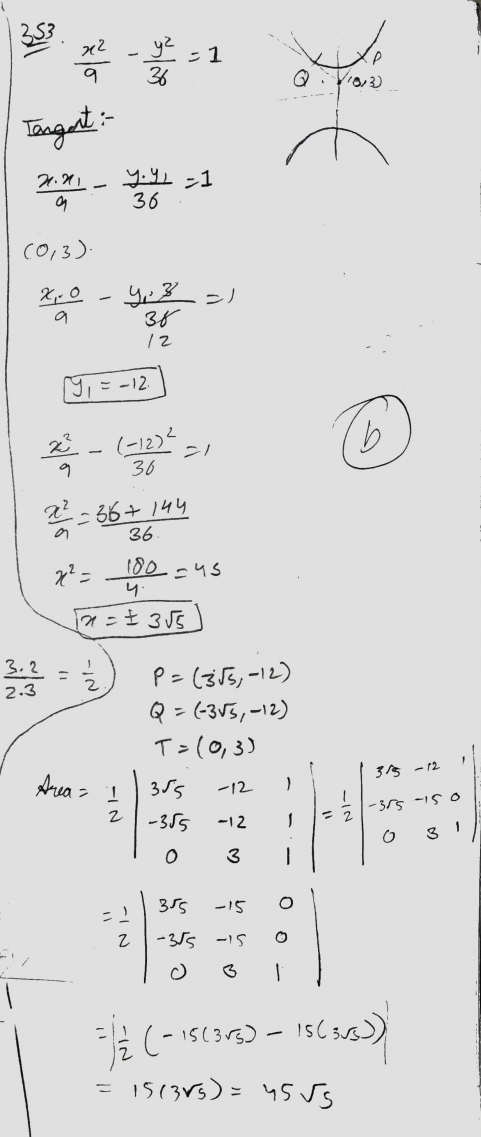 353.
x²/9 - y²/36 = 1
Q P (0,3)
Tangent :-
x.x₁/9 - y.y₁/36 = 1
(0,3).
x₁.0/9 - y₁.3/36 = 1
12
y₁ = -12.
b
x²/9 - (-12)²/36 = 1
x²/9 = 36 + 144/36.
x² = 180/4. = 45
x = ± 3√5
3.2/2.3 = 1/2
P = (3√5, -12)
Q = (-3√5, -12)
T = (0,3)
Area = 1/2 | 3√5 -12 1 | = 1/2 | 3√5 -12 1 |
| -3√5 -12 1 | | -3√5 -15 0 |
| 0 3 1 | | 0 3 1 |
= 1/2 | 3√5 -15 0 |
| -3√5 -15 0 |
| 0 3 1 |
= | 1/2 (-15(3√5) - 15(3√5)) |
= 15(3√5) = 45√5